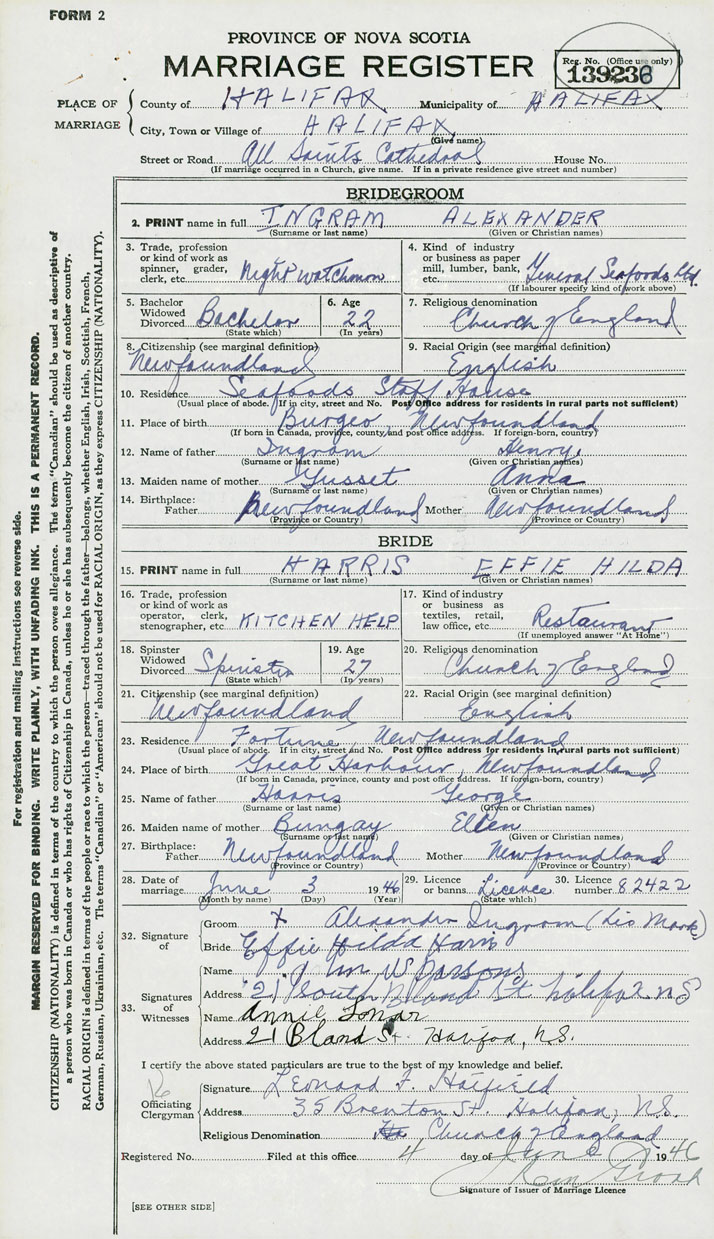 FORM 2
PROVINCE OF NOVA SCOTIA
MARRIAGE REGISTER
Reg. No. (Office use only)
139236
PLACE OF MARRIAGE
County of HALIFAX Municipality of HALIFAX
City, Town or Village of HALIFAX
(Give name)
Street or Road All Saints Cathedral House No.
(If marriage occurred in a Church, give name. If in a private residence give street and number)
BRIDEGROOM
2. PRINT name in full INGRAM ALEXANDER
(Surname or last name) (Given or Christian names)
3. Trade, profession or kind of work as spinner, grader, clerk, etc. Night watchman
4. Kind of industry or business as paper mill, lumber, bank, etc. General Seafoods Ltd.
(If labourer specify kind of work above)
5. Bachelor Widowed Divorced Bachelor
(State which)
6. Age 22
(In years)
7. Religious denomination
Church of England
8. Citizenship (see marginal definition)
Newfoundland
9. Racial Origin (see marginal definition)
English
10. Residence Seafoods Staff House
(Usual place of abode. If in city, street and No. Post Office address for residents in rural parts not sufficient)
11. Place of birth Burgeo, Newfoundland
(If born in Canada, province, county and post office address. If foreign-born, country)
12. Name of father Ingram Henry
(Surname or last name) (Given or Christian names)
13. Maiden name of mother Gusset Anna
(Surname or last name) (Given or Christian names)
14. Birthplace:
Father Newfoundland Mother Newfoundland
(Province or Country) (Province or Country)
BRIDE
15. PRINT name in full HARRIS EFFIE HILDA
(Surname or last name) (Given or Christian names)
16. Trade, profession or kind of work as operator, clerk, stenographer, etc. KITCHEN HELP
17. Kind of industry or business as textiles, retail, law office, etc. Restaurant
(If unemployed answer "At Home")
18. Spinster Widowed Divorced Spinster
(State which)
19. Age 27
(In years)
20. Religious denomination
Church of England
21. Citizenship (see marginal definition)
Newfoundland
22. Racial Origin (see marginal definition)
English
23. Residence Fortune, Newfoundland
(Usual place of abode. If in city, street and No. Post Office address for residents in rural parts not sufficient)
24. Place of birth Great Harbour, Newfoundland
(If born in Canada, province, county and post office address. If foreign-born, country)
25. Name of father Harris George
(Surname or last name) (Given or Christian names)
26. Maiden name of mother Bungay Ellen
(Surname or last name) (Given or Christian names)
27. Birthplace:
Father Newfoundland Mother Newfoundland
(Province or Country) (Province or Country)
28. Date of marriage June 3 1946
(Month by name) (Day) (Year)
29. Licence or banns. Licence
(State which)
30. Licence number 82422
32. Signature of
Groom X Alexander Ingram (his Mark)
Bride Effie Hilda Harris
33. Signatures of Witnesses
Name W Parsons
Address 21 South Bland St Halifax N S
Name Annie
Address 21 Bland St. Halifax, N.S.
I certify the above stated particulars are true to the best of my knowledge and belief.
Officiating Clergyman
Signature Leonard F. Hatfield
Address 35 Brenton St. Halifax, N.S.
Religious Denomination Church of England
Registered No. Filed at this office 4 day of June 1946
Signature of Issuer of Marriage Licence
[SEE OTHER SIDE]
For registration and mailing instructions see reverse side.
MARGIN RESERVED FOR BINDING. WRITE PLAINLY, WITH UNFADING INK. THIS IS A PERMANENT RECORD.
CITIZENSHIP (NATIONALITY) is defined in terms of the country to which the person owes allegiance. The term "Canadian" should be used as descriptive of
a person who was born in Canada or who has rights of Citizenship in Canada, unless he or she has subsequently become the citizen of another country.
RACIAL ORIGIN is defined in terms of the people or race to which the person—traced through the father—belongs, whether English, Irish, Scottish, French,
German, Russian, Ukrainian, etc. The terms "Canadian" or "American" should not be used for RACIAL ORIGIN, as they express CITIZENSHIP (NATIONALITY).